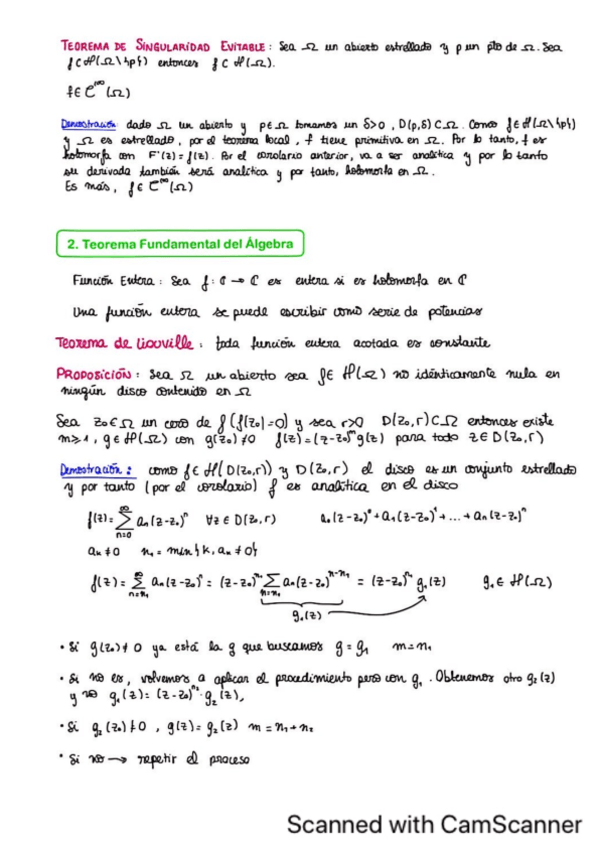 TEOREMA DE SINGULARIDAD EVITABLE: Sea Ω un abierto estrellado y p un pto de Ω. Sea
f ∈ H(Ω\{p}) entonces f ∈ H(Ω).
f ∈ C^∞(Ω)
Demostración: dado Ω un abierto y p∈Ω tomamos un δ>0, D(p,δ) ⊂ Ω. Como f ∈ H(Ω\{p})
y Ω es estrellado, por el teorema local, f tiene primitiva en Ω. Por lo tanto, f es
holomorfa con F'(z) = f(z). Por el corolario anterior, va a ser analítica y por lo tanto
su derivada también será analítica y por tanto, holomorfa en Ω.
Es más, f ∈ C^∞(Ω)
2. Teorema Fundamental del Álgebra
Función Entera: Sea f: ℂ → ℂ es entera si es holomorfa en ℂ
Una función entera se puede escribir como serie de potencias
Teorema de Liouville: toda función entera acotada es constante
PROPOSICIÓN: Sea Ω un abierto sea f ∈ H(Ω) no idénticamente nula en
ningún disco contenido en Ω
Sea z₀∈Ω un cero de f (f(z₀)=0) y sea r>0 D(z₀,r) ⊂ Ω entonces existe
m≥1, g ∈ H(Ω) con g(z₀)≠0 f(z) = (z-z₀)^m g(z) para todo z ∈ D(z₀,r)
Demostración: como f ∈ H(D(z₀,r)) y D(z₀,r) el disco es un conjunto estrellado
y por tanto (por el corolario) f es analítica en el disco
f(z) = ∑_{n=0}^∞ aₙ(z-z₀)^n ∀z ∈ D(z₀,r) a₀(z-z₀)^0 + a₁(z-z₀)^1 + ... + aₙ(z-z₀)^n
aₖ ≠ 0 n₁ = min{k, aₖ ≠ 0}
f(z) = ∑_{n=n₁}^∞ aₙ(z-z₀)^n = (z-z₀)^{n₁} ∑_{n=n₁} aₙ(z-z₀)^{n-n₁} = (z-z₀)^{n₁} g₁(z) g₁ ∈ H(Ω)
g₁(z)
• Si g(z₀) ≠ 0 ya está la g que buscamos g = g₁ m = n₁
• Si no es, volvemos a aplicar el procedimiento pero con g₁. Obtenemos otro g₂(z)
y no g₁(z) = (z-z₀)^{n₂} · g₂(z),
• Si g₂(z₀) ≠ 0, g(z) = g₂(z) m = n₁+n₂
• Si no → repetir el proceso
Scanned with CamScanner